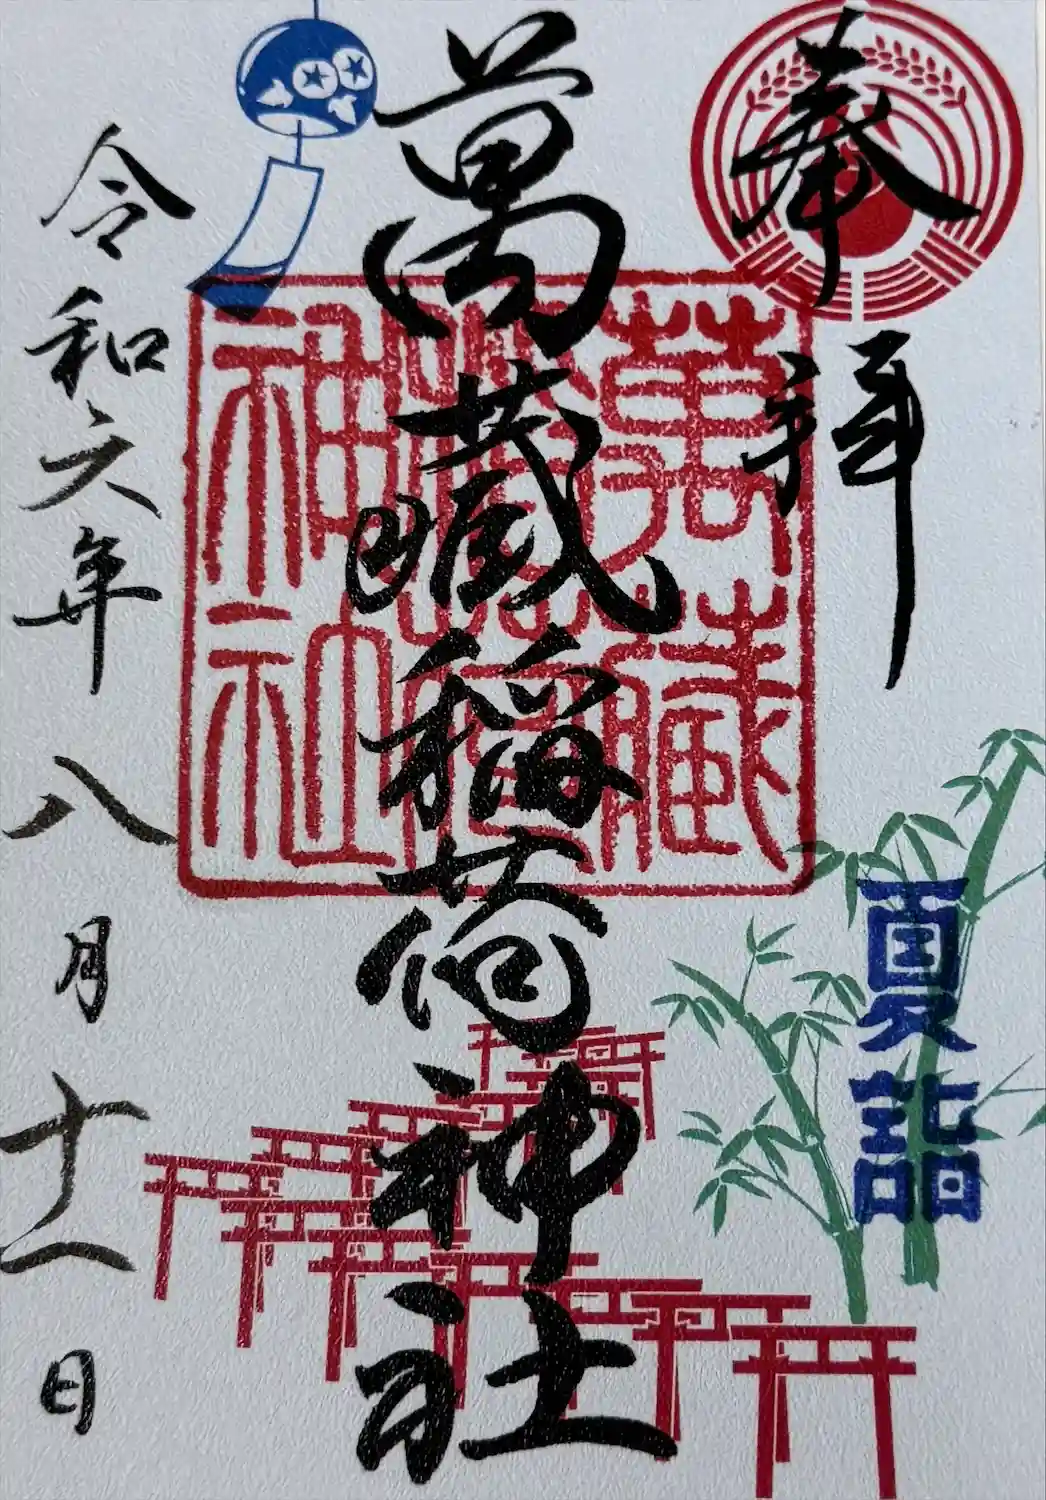 奉拝
夏詣
萬蔵稲荷神社
萬藏稲荷神社
令和六年八月十一日